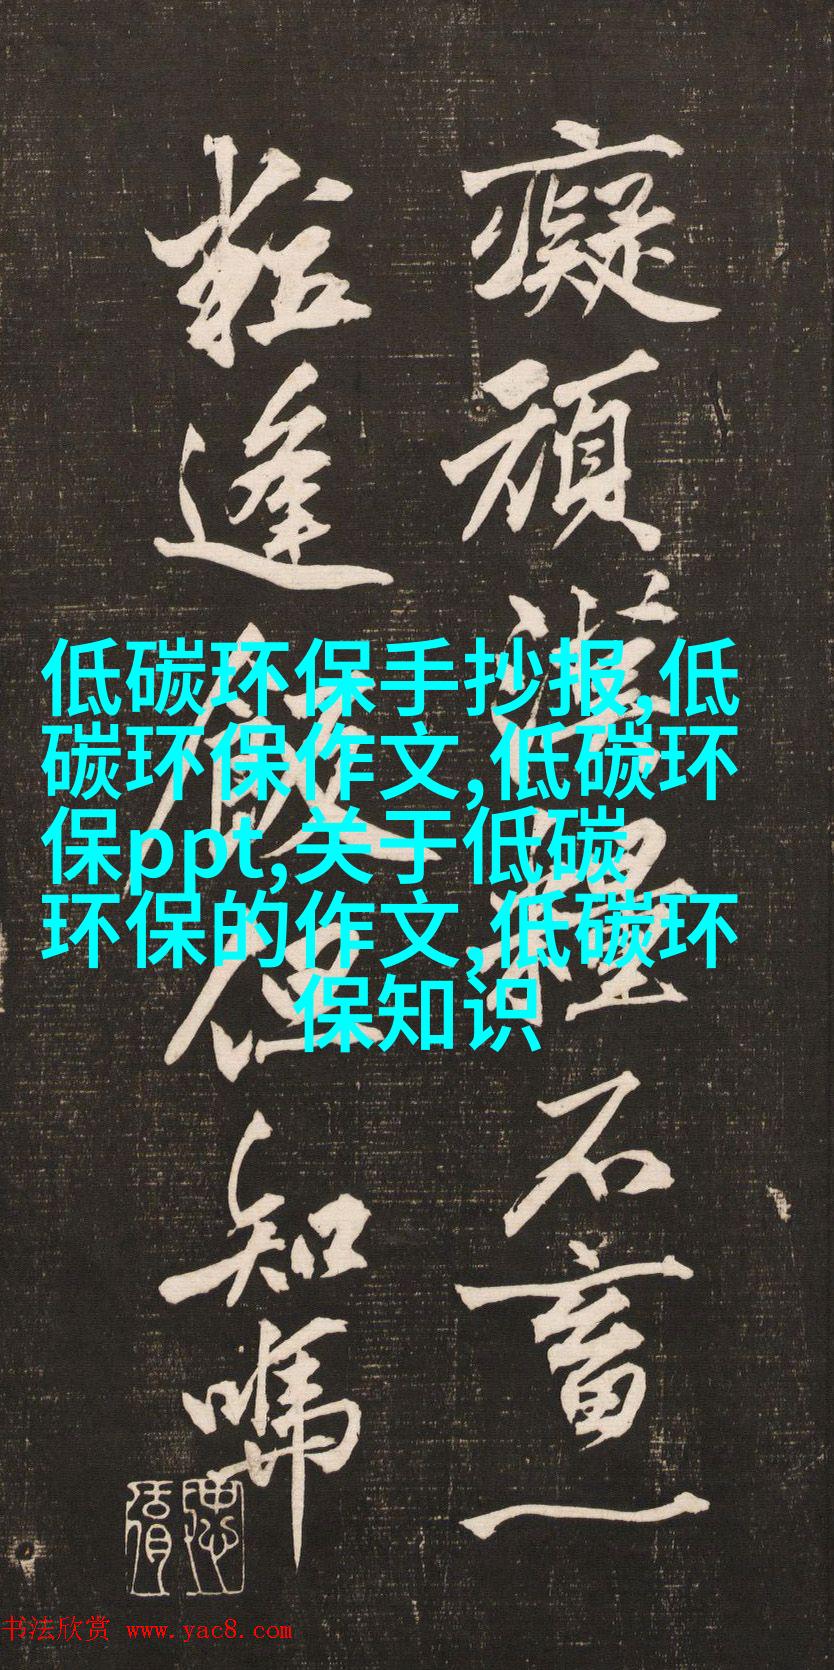 癡頑漢糧不畜一
粒逢飯但知嗎
低碳环保手抄报,低
碳环保作文,低碳环
保ppt,关于低碳
环保的作文,低碳环
保知识
书法欣赏 www.yac8.com